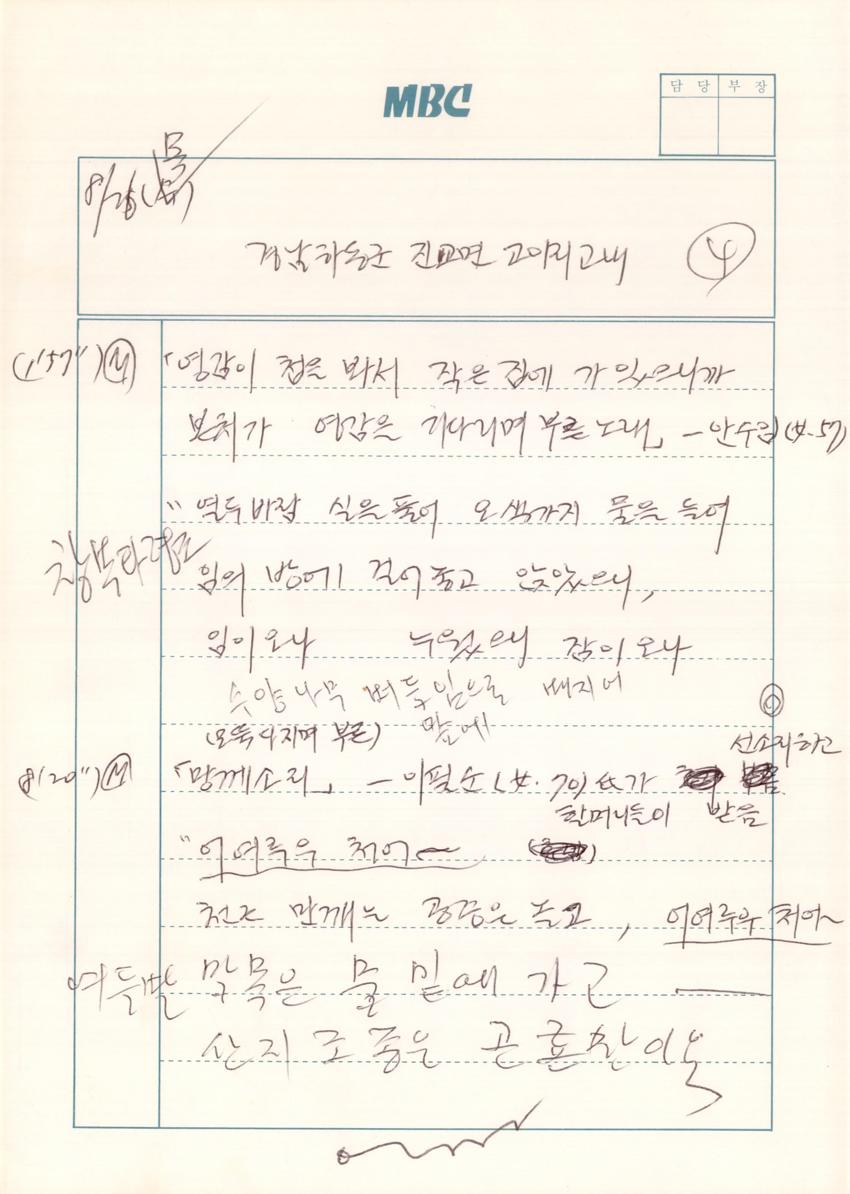 MBC
담당 부장
목
경남하동군 진교면 고이리고내
4
(1'57") M 「영감이 첩을 봐서 작은 집에 가 있으니까
본처가 영감을 기다리며 부른 노래」 - 안수림(여.57)
"열두바잡 실은풀어 오색가지 물은 들여
임의 방에 걸어놓고 앉았으니,
임이오나 누웠으니 잠이오나
수양나무 버들잎으로
(모뚝다지며 부른) 말에
선소리하고
(8'20") M 「망께소리」 - 이필순(여.70)씨가
할머니들이 받음
"어여루우 처어~
천근 망깨는 공중은 놀고, 어여루우 처어~
여들발 막목은 물 밑에 가고
산지조종은